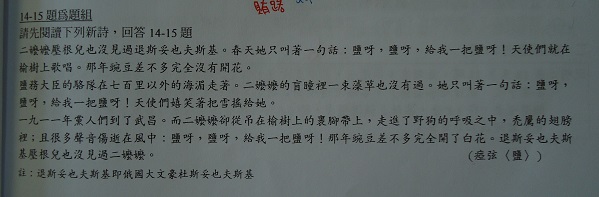 賄賂
14-15 題爲題組
請先閱讀下列新詩，回答 14-15 題
二嬤嬤壓根兒也沒見過退斯妥也夫斯基。春天她只叫著一句話：鹽呀，鹽呀，給我一把鹽呀！天使們就在
榆樹上歌唱。那年豌豆差不多完全沒有開花。
鹽務大臣的駱隊在七百里以外的海湄走著。二嬤嬤的盲瞳裡一束藻草也沒有過。她只叫著一句話：鹽呀，
鹽呀，給我一把鹽呀！天使們嬉笑著把雪搖給她。
一九一一年黨人們到了武昌。而二嬤嬤卻從吊在榆樹上的裹腳帶上，走進了野狗的呼吸之中，禿鷹的翅膀
裡；且很多聲音傷逝在風中：鹽呀，鹽呀，給我一把鹽呀！那年豌豆差不多完全開了白花。退斯妥也夫斯
基壓根兒也沒見過二嬤嬤。
(瘂弦〈鹽〉)
註：退斯妥也夫斯基即俄國大文豪杜斯妥也夫斯基